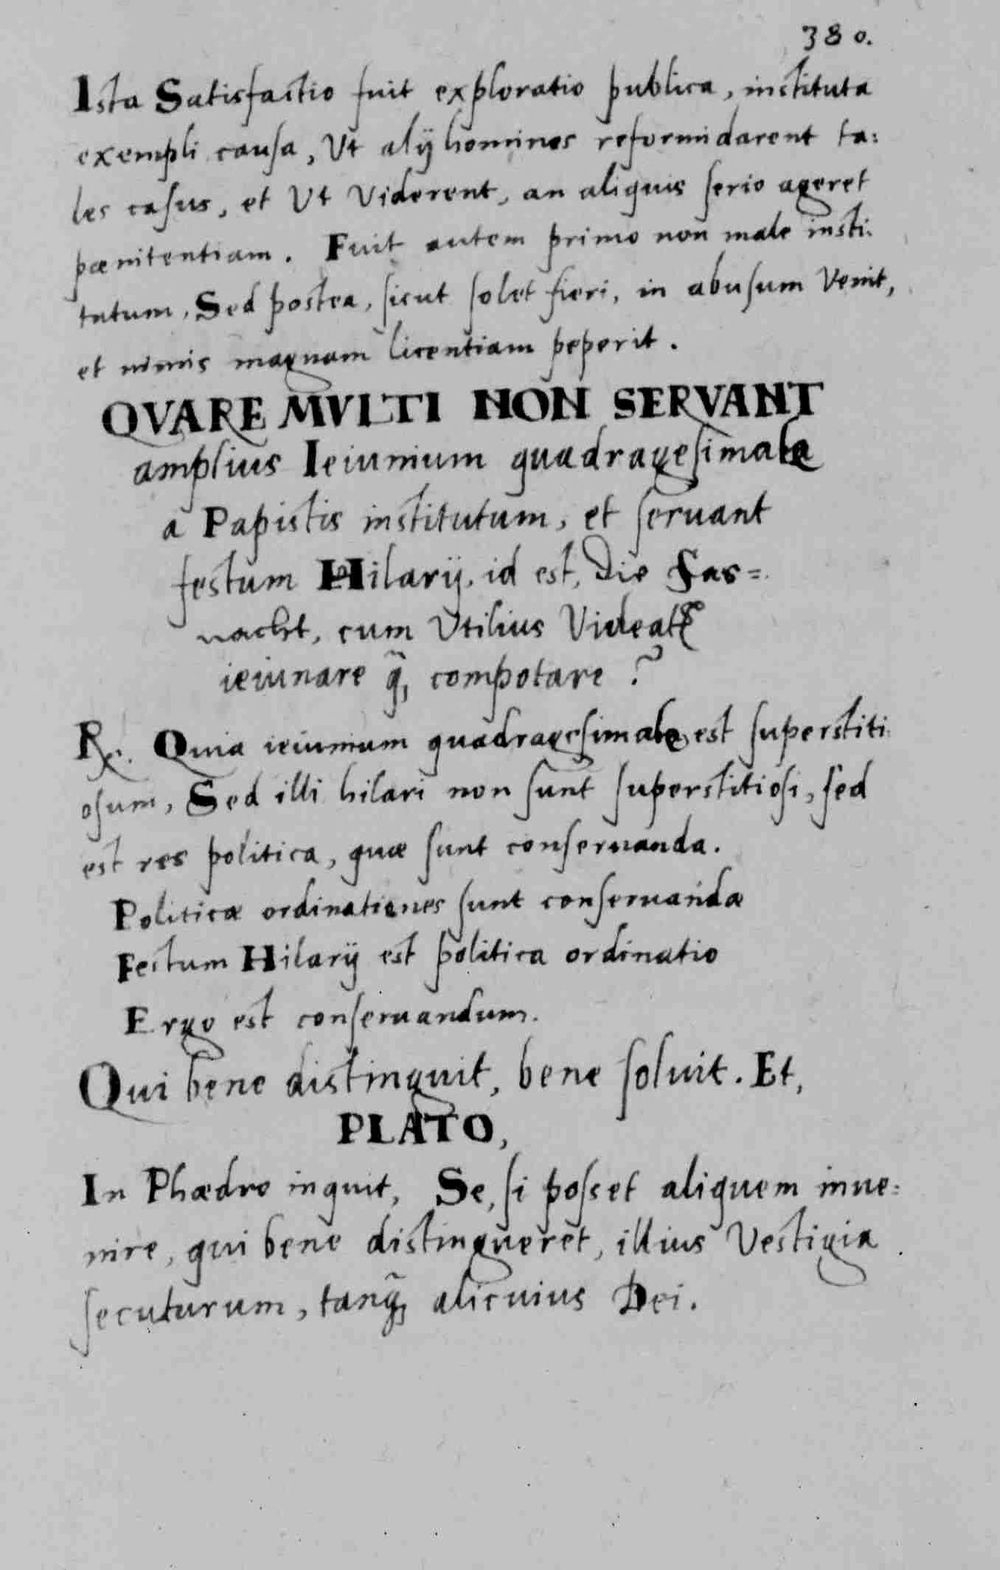 380.
Ista Satisfactio fuit exploratio publica, instituta
exempli causa, Ut alij homines reformidarent ta:
les casus, et Ut Viderent, an aliquis serio ageret
pænitentiam. Fuit autem primo non male insti:
tutum, Sed postea, sicut solet fieri, in abusum Venit,
et nimis magnam licentiam peperit.
QVARE MVLTI NON SERVANT
amplius Ieiunium quadragesimale
a Papistis institutum, et seruant
festum Hilarij, id est, Die Fas=
nacht, cum Utilius Videatꝛ
ieiunare q̃, compotare ?
R. Quia ieiunium quadragesimale est superstiti
osum, Sed illi hilari non sunt superstitiosi, sed
est res politica, quæ sunt conseruanda.
Politicæ ordinationes sunt conseruandæ
Festum Hilarij est politica ordinatio
Ergo est conseruandum.
Qui bene distinguit, bene soluit. Et,
PLATO,
In Phædro inquit, Se, si posset aliquem inue:
nire, qui bene distingueret, illius Vestigia
secuturum, tanq̃, alicuius Dei.